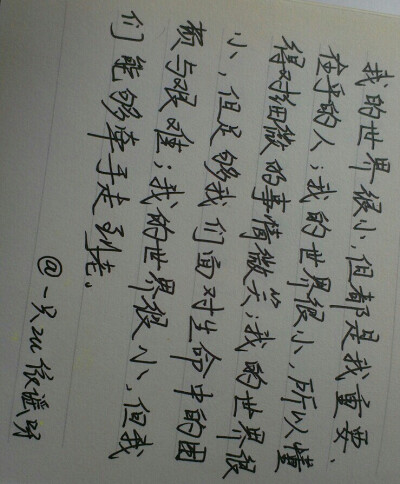 我的世界很小,但都是我重要、
在乎的人;我的世界很小,所以懂
得对细微的事情微笑;我的世界很
小,但足够我们面对生命中的困
顿与艰难;我的世界很小,但我
们能够牵手走到老。
@一只